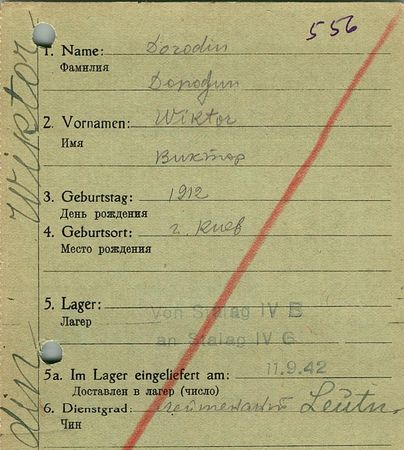 556
1. Name: Dorodin
Фамилия
Дородин
2. Vornamen: Wiktor
Имя
Виктор
3. Geburtstag: 1912
День рождения
4. Geburtsort: г. Киев
Место рождения
5. Lager: von Stalag IV B
Лагер an Stalag IV G
5a. Im Lager eingeliefert am: 11.9.42
Доставлен в лагер (число)
6. Dienstgrad: Leutn.
Чин
din Wiktor